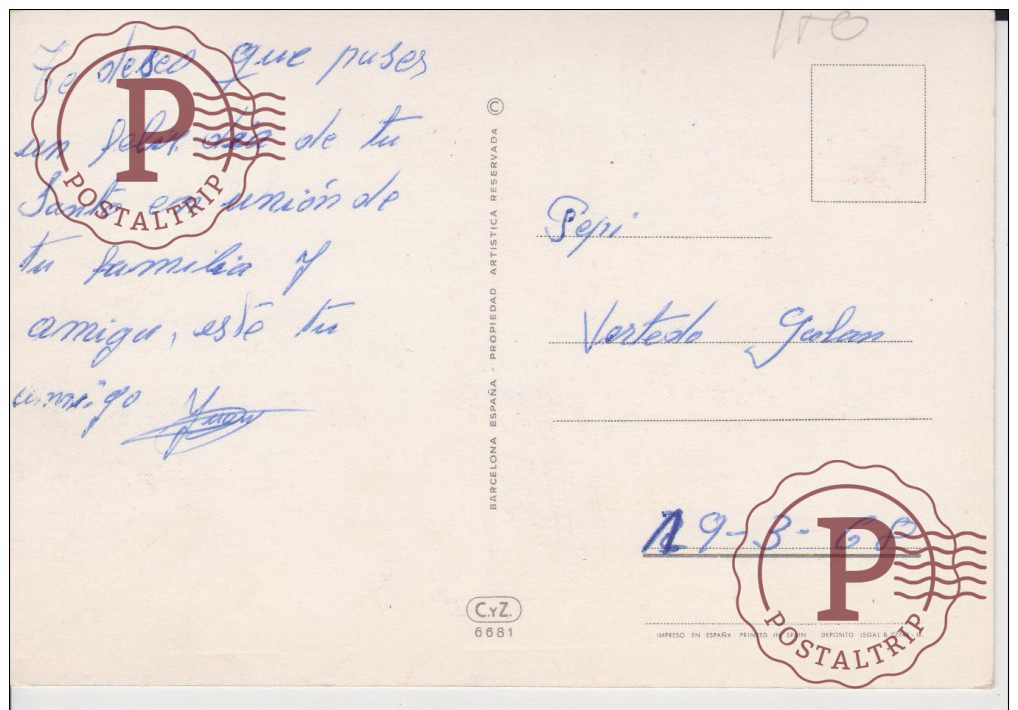 Te deseo que puses
un feliz día de tu
Santo en unión de
tu familia y
amiga, este tu
amigo Juan
BARCELONA ESPAÑA - PROPIEDAD ARTISTICA RESERVADA ©
Pepi
Vertedo Galan
19-3-68
C.Y Z.
6681
IMPRESO EN ESPAÑA PRINTED IN SPAIN DEPOSITO LEGAL B.
P
POSTALTRIP
P
POSTALTRIP